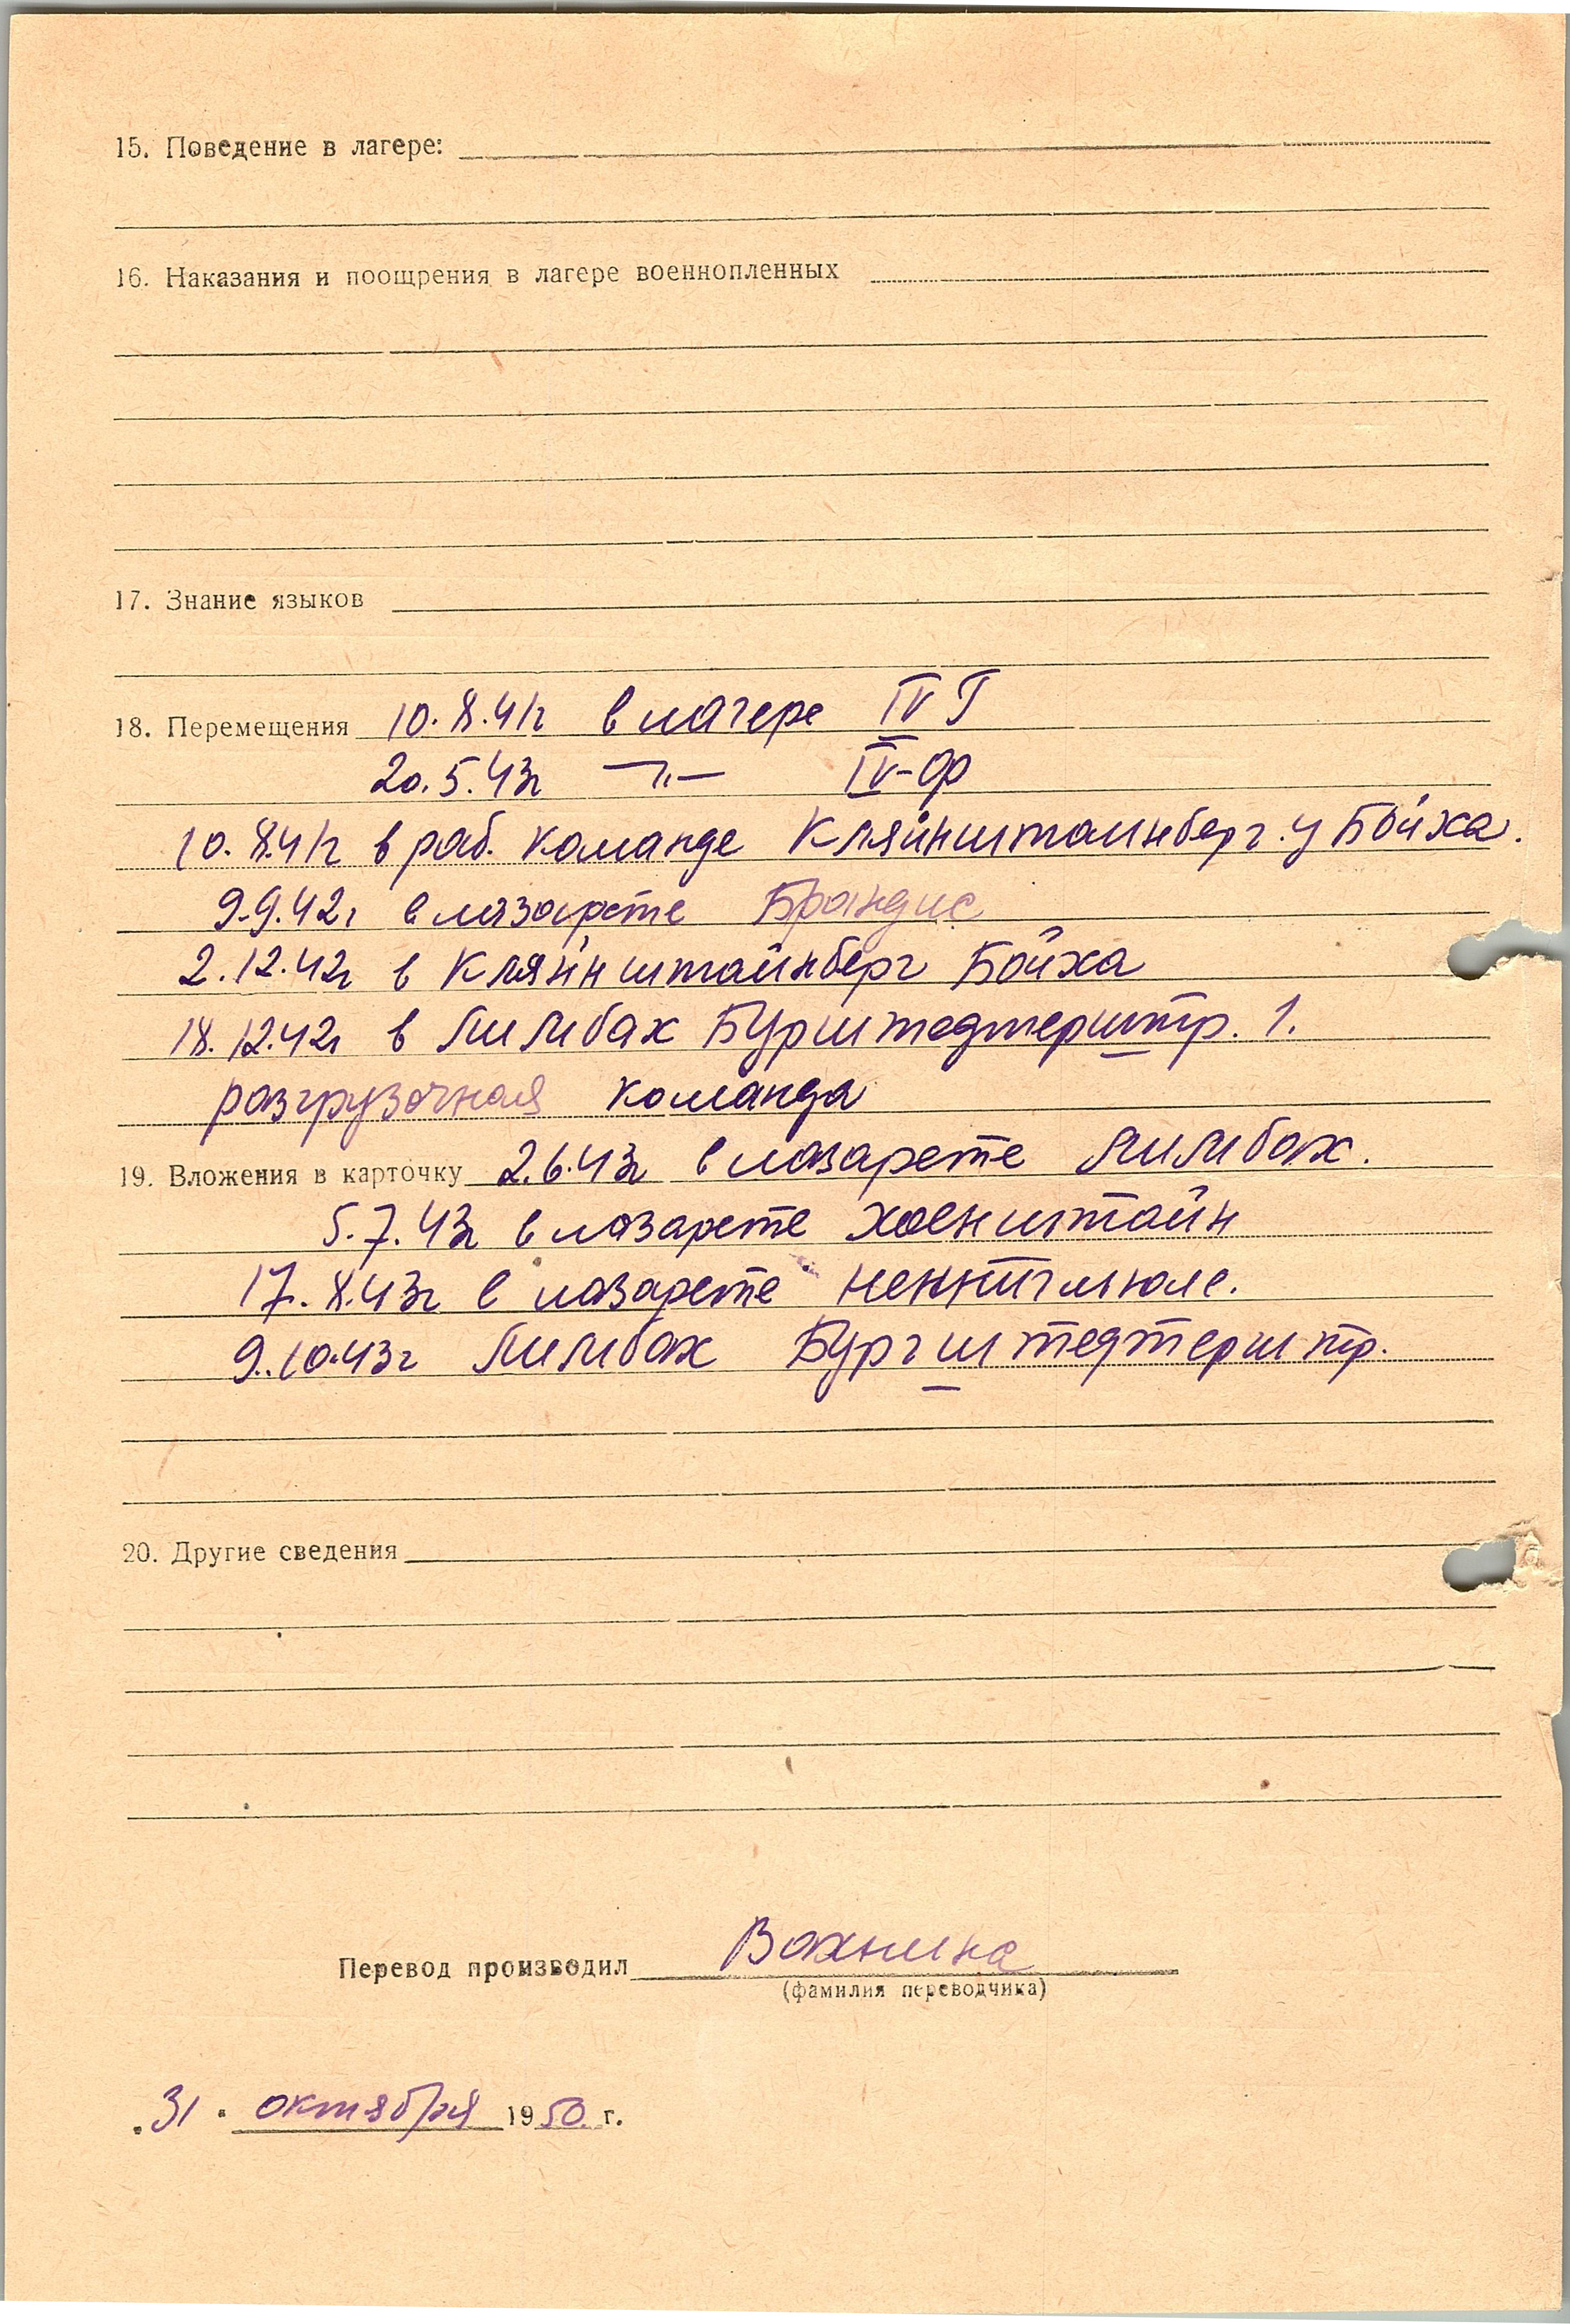 15. Поведение в лагере:
16. Наказания и поощрения в лагере военнопленных
17. Знание языков
18. Перемещения 10.8.41г в лагере IV Г
20.5.43г —"— IV-Ф
10.8.41г в раб. команде Кляйнштаинберг у Бойха.
9.9.42г в лазарете Брандис
2.12.42г в Кляйнштайнберг Бойха
18.12.42г в Лимбах Бурштедтерштр. 1.
разгрузочная команда
19. Вложения в карточку 2.6.43г в лазарете Лимбах.
5.7.43г в лазарете Хоенштайн
17.8.43г в лазарете
9.10.43г Лимбах Бургштедтерштр.
20. Другие сведения
Перевод производил Вахнина
(фамилия переводчика)
"31" октября 1950 г.